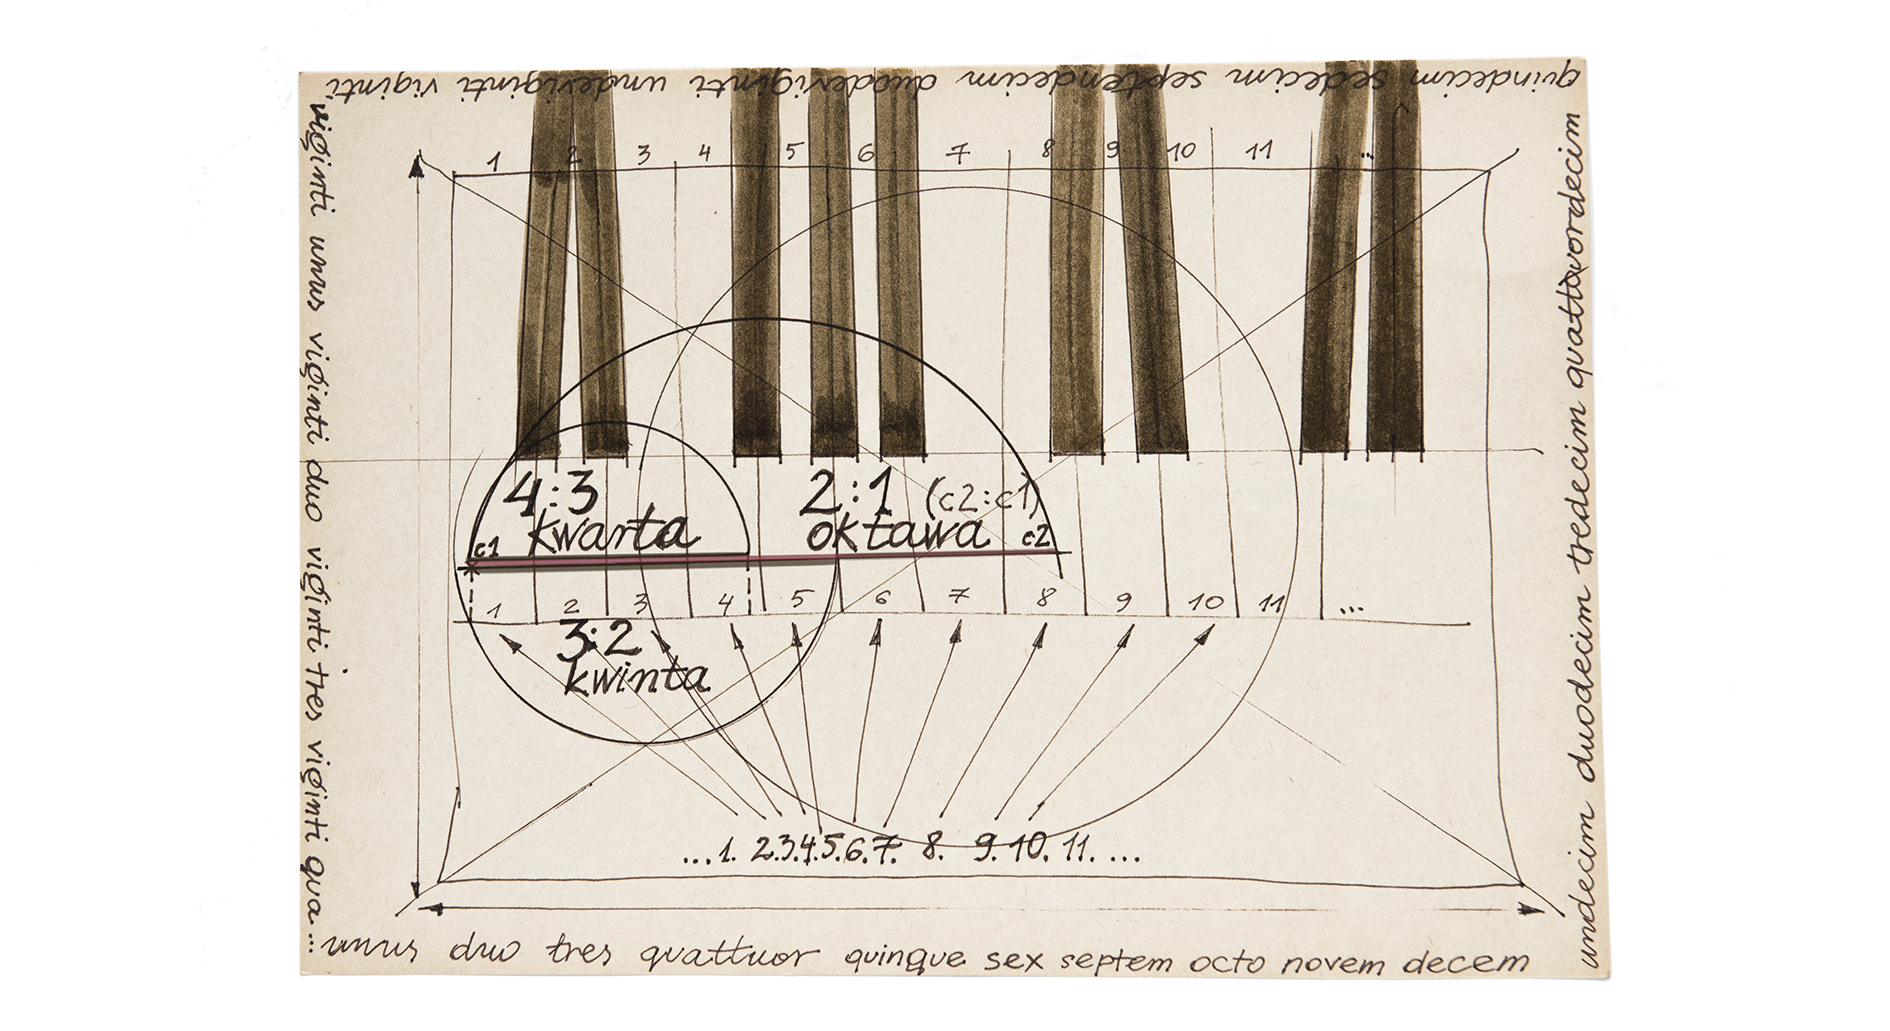 quindecim sedecim septendecim duodeviginti undeviginti viginti
1 2 3 4 5 6 7 8 9 10 11 ...
4:3
kwarta
2:1 (c2:c1)
oktawa
c1
c2
1 2 3 4 5 6 7 8 9 10 11 ...
3:2
kwinta
...1. 2.3.4.5.6.7. 8. 9. 10. 11. ...
viginti unus viginti duo viginti tres viginti qua...
unus duo tres quattuor quinque sex septem octo novem decem
undecim duodecim tredecim quattuordecim